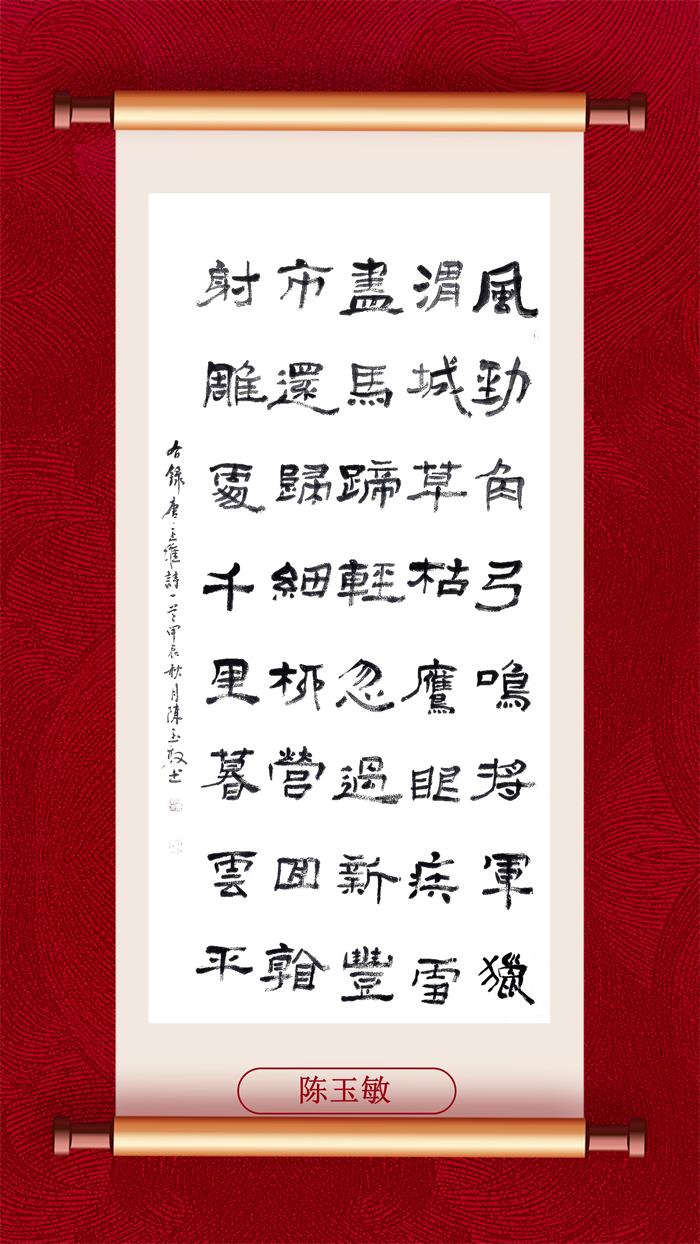 風勁角弓鳴將軍獵
渭城草枯鷹眼疾雪
盡馬蹄輕忽過新豐
市還歸細柳營回看
射雕處千里暮雲平
右錄唐王維詩一首甲辰秋月陳玉敏书
陈玉敏